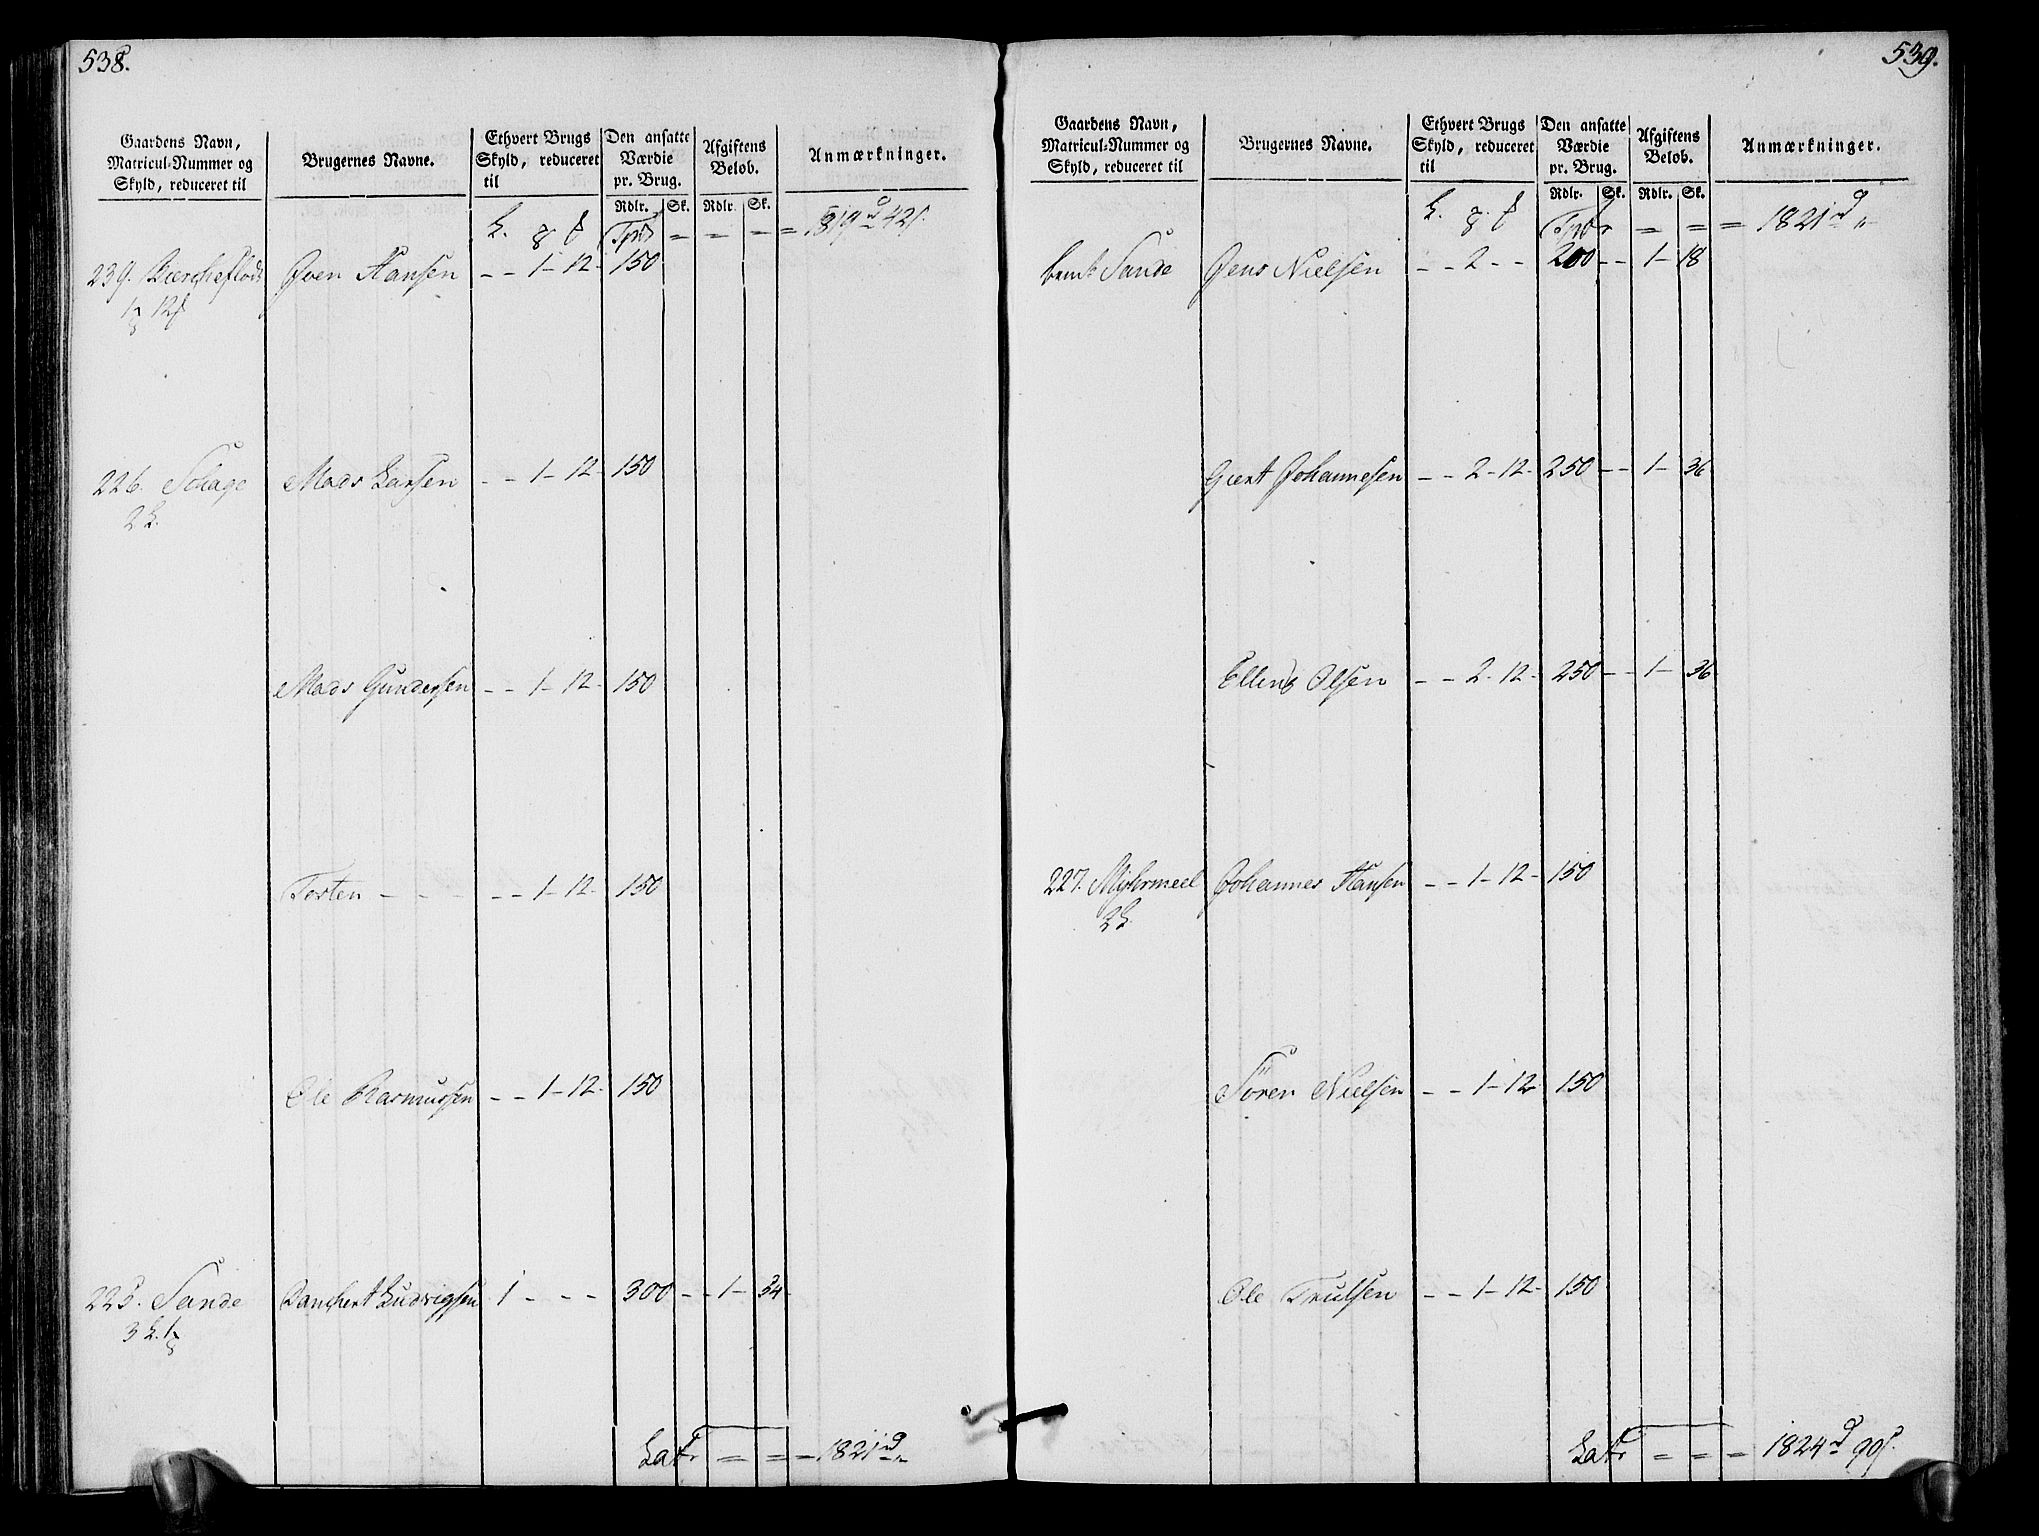 538.
Gaardens Navn,
Matricul-Nummer og
Skyld, reduceret til
Brugernes Navne.
Ethvert Brugs
Skyld, reduceret
til
Den ansatte
Værdie
pr. Brug.
Rdlr. Sk.
Afgiftens
Beløb.
Rdlr. Sk.
Anmærkninger.
Tpr = = = = 1819 d 42 s.
239. Biercheflødt Iver Hansen - - 1 - 12 - 150
226. Schage Mads Larsen - - 1 - 12 - 150
2 L.
Mads Gundersen - - 1 - 12 - 150
Torsten - - - - - 1 - 12 - 150
Ole Rasmussen - - 1 - 12 - 150
225. Sande Danchert Ludvigsen 1 - - - 300 - - 1 - 34
3 L. 1
Latr = = = 1821 d "
539.
Gaardens Navn,
Matricul-Nummer og
Skyld, reduceret til
Brugernes Navne.
Ethvert Brugs
Skyld, reduceret
til
Den ansatte
Værdie
pr. Brug.
Rdlr. Sk.
Afgiftens
Beløb.
Rdlr. Sk.
Anmærkninger.
Tpr = = = 1821 d "
Sande Jens Nielsen - - 2 - - 200 - - 1 - 18
Giert Johannesen - - 2 - 12 - 250 - - 1 - 36
Elling Olsen - - 2 - 12 - 250 - - 1 - 36
227. Johannes Hansen - - 1 - 12 - 150
2 L.
Sören Nielsen - - 1 - 12 150
Ole Trulsen - - 1 - 12 - 150
Latr = = = 1824 d 90 s.